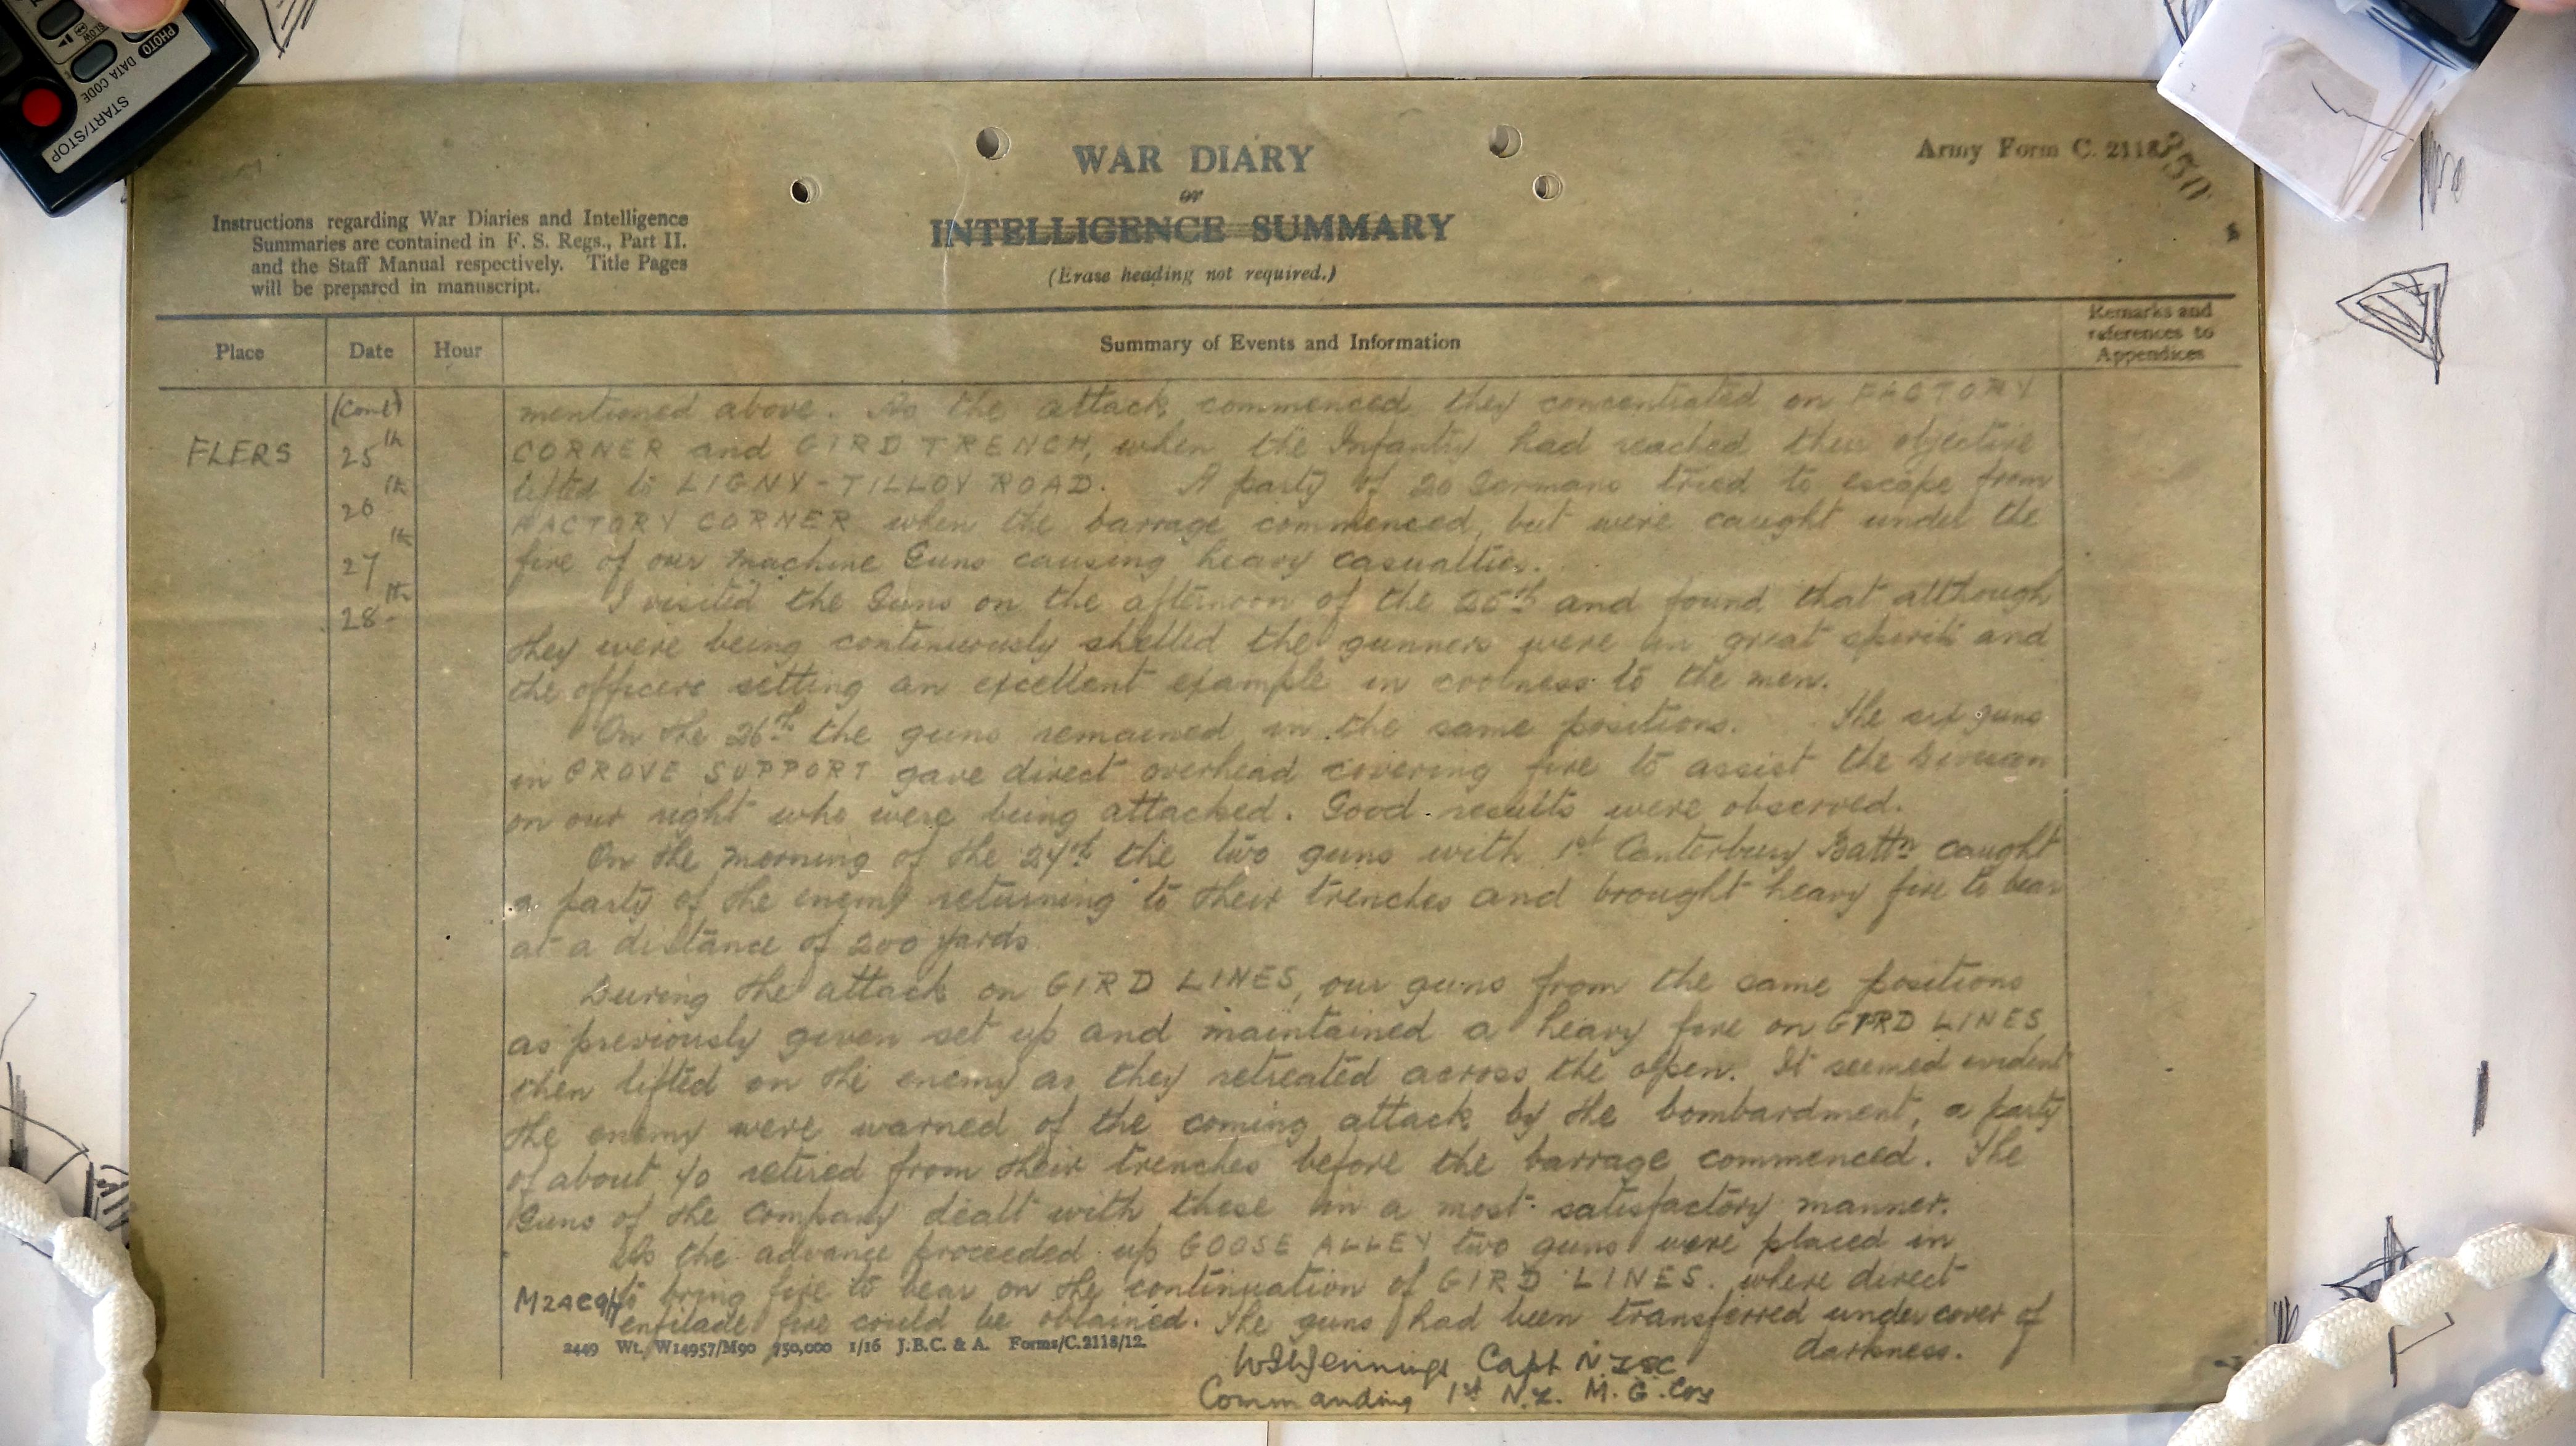 PHOTO
DATA CODE
START/STOP
WAR DIARY
or
INTELLIGENCE SUMMARY
(Erase heading not required.)
Army Form C. 2118
350
Instructions regarding War Diaries and Intelligence
Summaries are contained in F. S. Regs., Part II.
and the Staff Manual respectively. Title Pages
will be prepared in manuscript.
Place
Date
Hour
Summary of Events and Information
Remarks and
references to
Appendices
(Cont)
FLERS
25th
26th
27th
28th
mentioned above. As the attack commenced they concentrated on FACTORY
CORNER and GIRD TRENCH, when the Infantry had reached their objective
lifted to LIGNY-TILLOY ROAD. A party of 20 Germans tried to escape from
FACTORY CORNER when the barrage commenced, but were caught under the
fire of our Machine Guns causing heavy casualties.
I visited the Guns on the afternoon of the and found that although
they were being continuously shelled the gunners were in great spirit and
the officers setting an excellent example in coolness to the men.
On the 26th the guns remained in the same positions. The six guns
in GROVE SUPPORT gave direct overhead covering fire to assist the Division
on our right who were being attacked. Good results were observed.
On the morning of the 27th the two guns with 1st Canterbury Battn caught
a party of the enemy returning to their trenches and brought heavy fire to bear
at a distance of 200 yards
During the attack on GIRD LINES, our guns from the same positions
as previously given set up and maintained a heavy fire on GIRD LINES
then lifted on the enemy as they retreated across the open. It seemed evident
the enemy were warned of the coming attack by the bombardment, a party
of about 40 retired from their trenches before the barrage commenced. The
Guns of the Company dealt with these in a most satisfactory manner.
As the advance proceeded up GOOSE ALLEY two guns were placed in
M24C9/4 to bring fire to bear on the continuation of GIRD LINES. where direct
enfilade fire could be obtained. The guns had been transferred under cover of
darkness.
2449 Wt. W14957/M90 750,000 1/16 J.B.C. & A. Forms/C.2118/12.
Jennings Capt NZSC
Commanding 1st N.Z. M.G.Coy